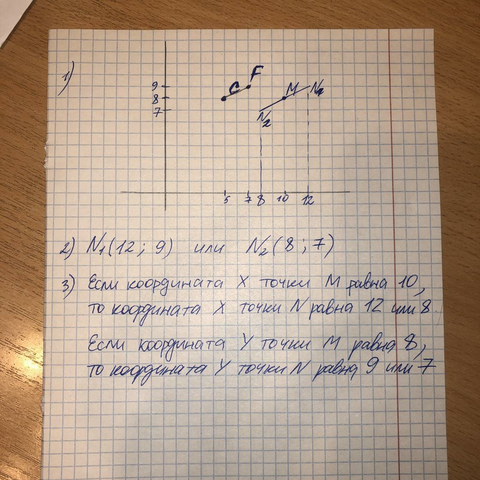 1)
F
C
9
8
7
M
N₁
N₂
5 7 8 10 12
2) N₁(12; 9) или N₂(8; 7)
3) Если координата X точки M равна 10,
то координата X точки N равна 12 или 8.
Если координата Y точки M равна 8,
то координата Y точки N равна 9 или 7